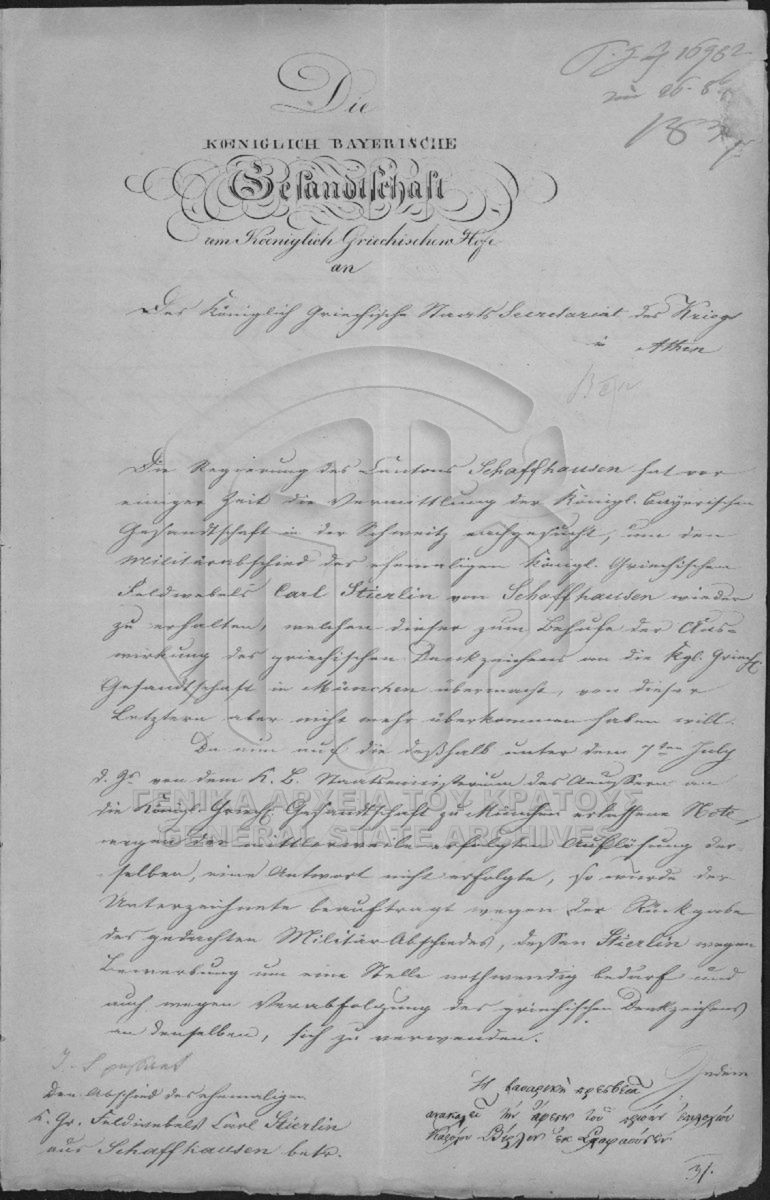 16982
Die
KŒNIGLICH BAYERISCHE
Gesandtschaft
am Kœniglich Griechischen Hofe
an
Das Königlich Griechische Staats Secretariat des Kriegs
Athen
Die Regierung des Cantons Schaffhausen hat vor
einiger Zeit die Vermittlung der Königl. Bayerischen
Gesandtschaft in der Schweitz nachgesucht, um den
Militärabschied des ehemaligen Königl. Griechischen
Feldwebels Carl Stierlin von Schaffhausen wieder
zu erhalten, welchen dieser zum Behufe der Aus-
wirkung des griechischen Denkzeichens an die Kgl. Griech.
Gesandtschaft in München übermacht, von dieser
Letztern aber nicht mehr überkommen haben will.
Da nun auf die deßhalb unter dem 7ten July
d. Js von dem K. B. Staatsministerium des Aeussern an
die Königl. Griech. Gesandtschaft zu München erlassene Note,
wegen der mittlerweile erfolgten Auflösung der-
selben, eine Antwort nicht erfolgte, so wurde der
Unterzeichnete beauftragt wegen der Rückgabe
des gedachten Militär-Abschiedes, dessen Stierlin wegen
Bewerbung um eine Stelle nothwendig bedarf und
auch wegen Verabfolgung des griechischen Denkzeichens
an denselben, sich zu verwenden.
Indem
Den Abschied des ehemaligen
K. Gr. Feldwebels Carl Stierlin
aus Schaffhausen betr.
Ἡ βαυαρικὴ πρεσβεία
τὴν ἄφεσιν τοῦ
Καρόλου ἐκ
ΓΕΝΙΚΑ ΑΡΧΕΙΑ ΤΟΥ ΚΡΑΤΟΥΣ
GENERAL STATE ARCHIVES